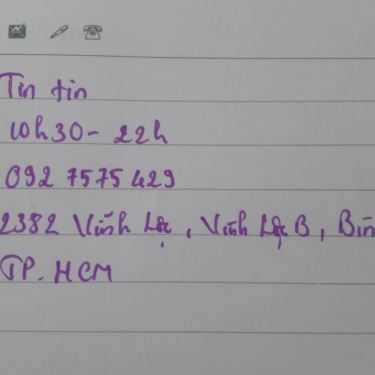 Tin tin
10h30 - 22h
092 7575 429
2382 Vĩnh Lộc, Vĩnh Lộc B, Bìn
TP. HCM